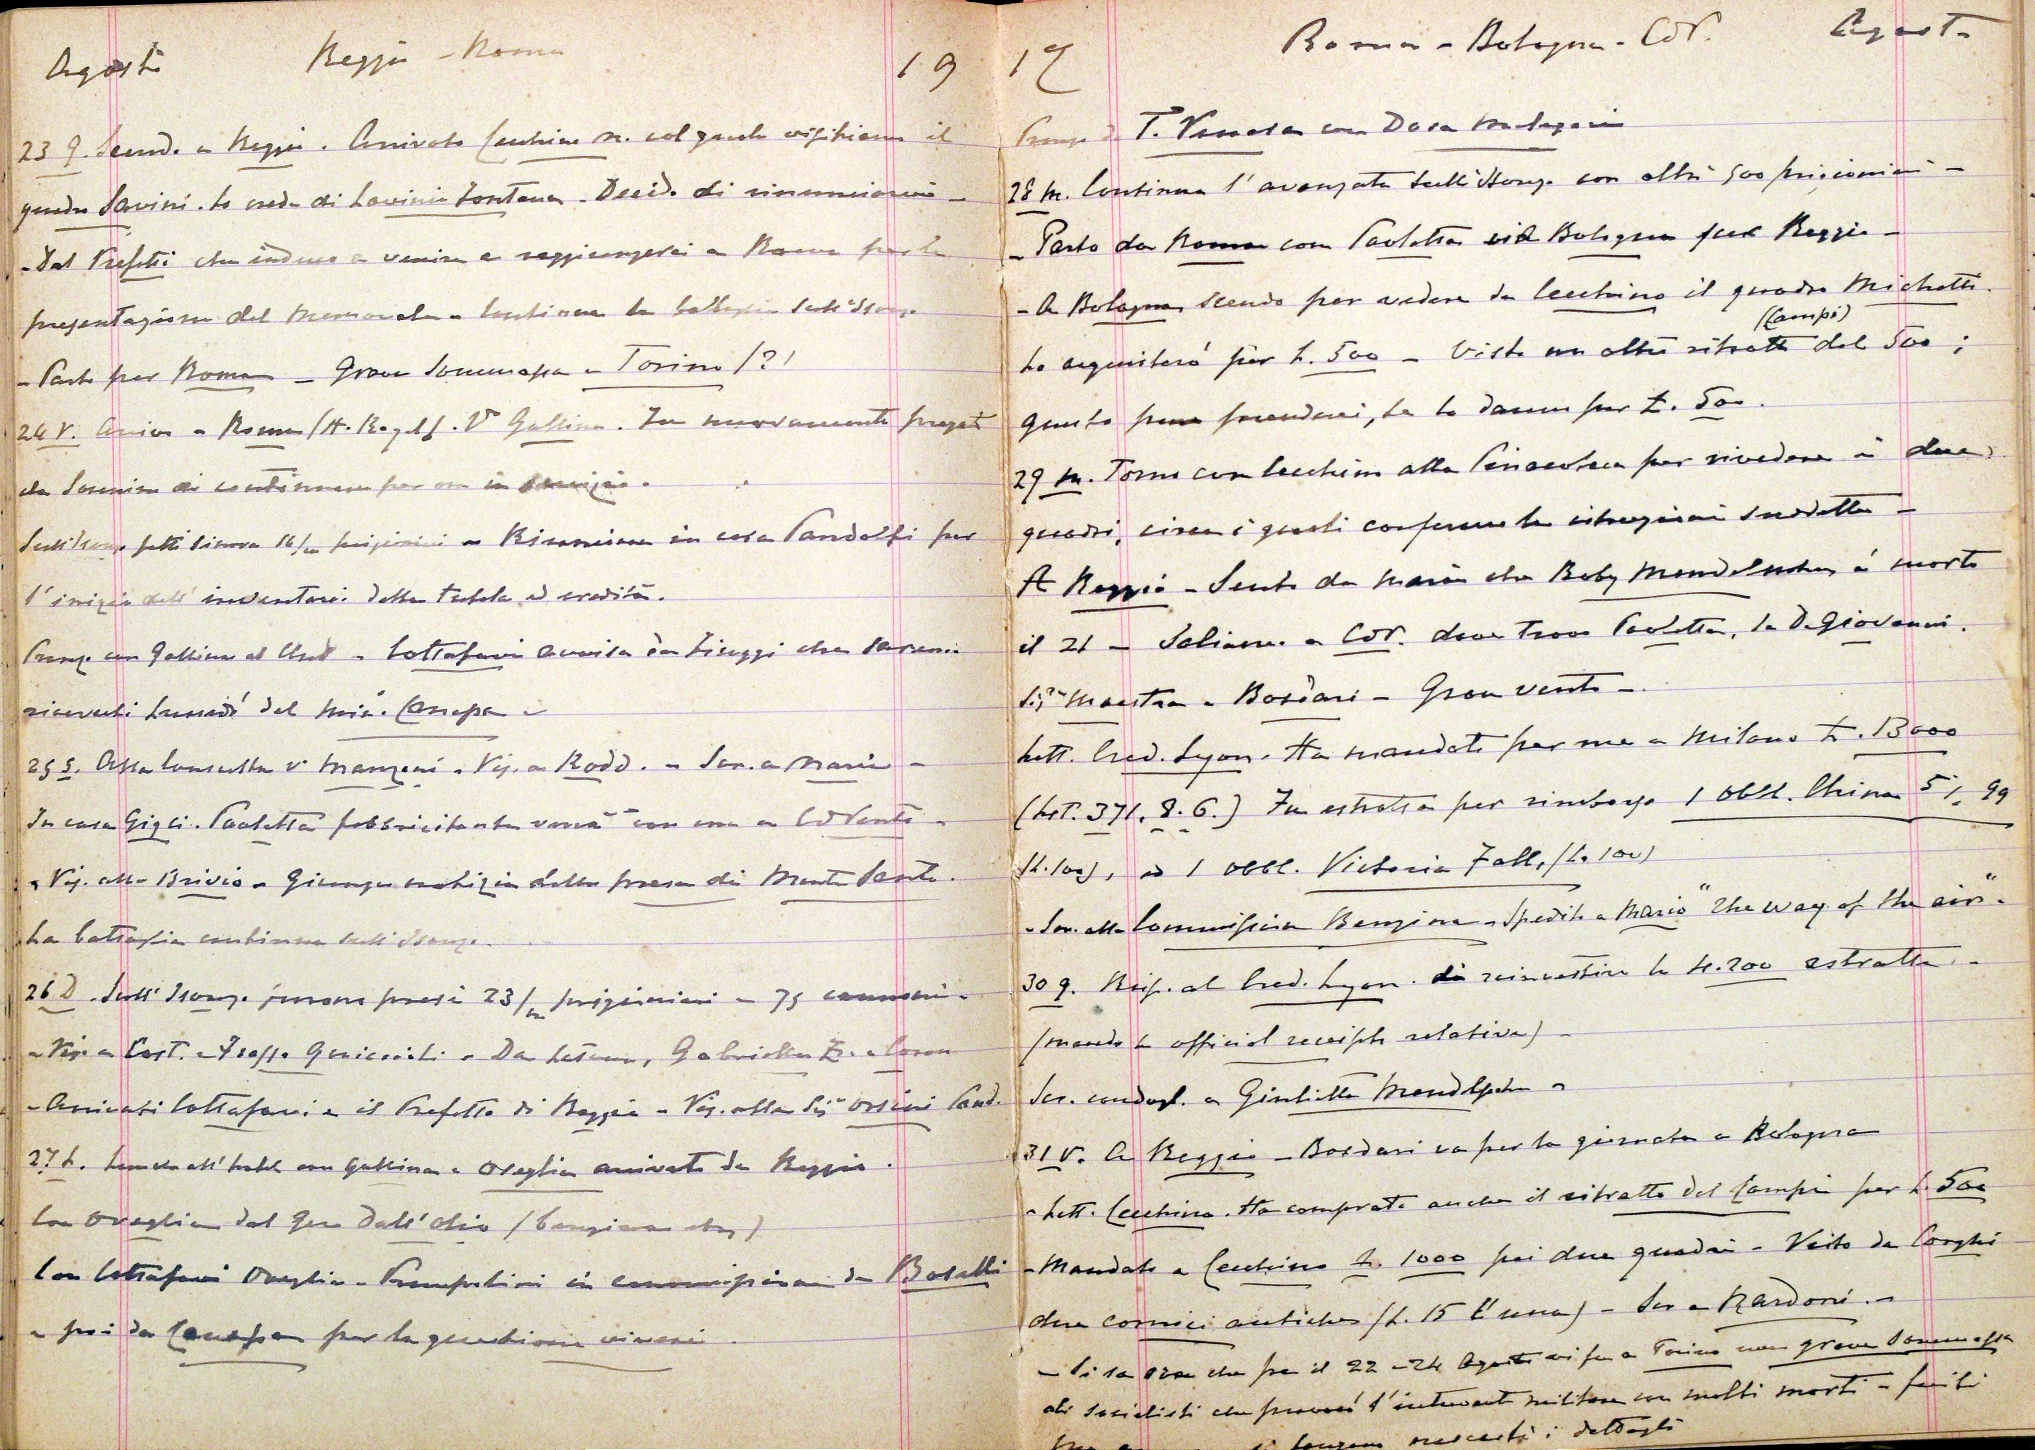 Agosto Reggio - Roma 19
23 g. Scendo a Reggio. Arrivato Cecchino M. col quale visitiamo il
quadro Savini. Lo crede di Lavinia Fontana - Decido di rinunciarvi -
- Dal Prefetto che induco a venire a raggiungerci a Roma per la
presentazione del Memoriale - Continua la battaglia sull'Isonzo
- Parto per Roma - Grave sommossa a Torino (?)
24 V. Arrivo a Roma (H. Royal). Vo Gallina. Fu nuovamente pregato
da Sonnino di continuare per ora in servizio.
Sull'Isonzo fatti sinora 16/m prigionieri - Riunione in casa Pandolfi per
l'inizio dell'inventario della tutela ed eredità.
Pranzo con Gallina al Club - Cottafavi avvisa da Fiuggi che saremo
ricevuti lunedì dal Min. Canepa -
25 S. Alla Consulta v. Manzoni - Vis. a Rodd. - Scr. a Mario -
In casa Gigli. Paoletta febbricitante verrà con me a Cor
- Vis. alla Brivio - Giunge notizia della presa di Monte Santo.
La battaglia continua sull'Isonzo.
26 D. Sull'Isonzo furono presi 23/m prigionieri - 75 cannoni -
- Vis. a Cast. - Frasso Guicciardi - Da Letizia, Gabriella
- Arrivati Cottafavi e il Prefetto di Reggio - Vis. alla Sig.ra Orsini Pand.
27 L. Lunch all'hotel con Gallina e Oveglia arrivato da Reggio.
Con Oveglia dal Gen. Dall'Olio (benzina
Con Cottafavi Oveglia - in commissione da Boselli
- poi da Canepa per la questione viveri.
17 Roma - Bologna - Cor. Agosto
Pranzo da T. Venosa con Dora
28 M. Continua l'avanzata sull'Isonzo con altri 500 prigionieri -
- Parto da Roma con Paoletta via Bologna per Reggio -
- A Bologna scendo per vedere da Cecchino il quadro Michetti.
(Campi)
Lo acquisterò per L. 500 - Visto un altro ritratto del 500;
questo pure prenderei, se lo danno per L. 500.
29 M. Torno con Cecchino alla Pinacoteca per rivedere i due
quadri, circa i quali confermo le istruzioni suddette -
A Reggio - Sento da Maria che Baby Mendelssohn è morto
il 21 - Saliamo a Cor. dove trovo Paoletta, la De Giovanni.
Sig.na Maestra - Bosdari - Gran vento -
Lett. Cred. Lyon. Ha mandato per me a Milano L. 13000
(Let. 371. 8. 6.) Fu estratta per rimborso 1 Obbl. China 5% 99
(L. 100), ed 1 Obbl. Victoria Fall, (L. 100)
- Scr. alla Commissione Benzina - Spedito a Mario "The way of the air" -
30 g. Risp. al Cred. Lyon. di reinvestire le L. 200 estratte -
(mando la official receipts relativa) -
Scr. condogl. a Giulietta Mendelssohn -
31 V. A Reggio - Bosdari va per la giornata a Bologna
- Lett. Cecchino. Ha comprato anche il ritratto del Campi per L. 500
- Mandato a Cecchino L. 1000 pei due quadri - Visto da Corghi
due cornici antiche (L. 15 l'una) - Scr a Nardoni -
- Si sa ora che fra il 22 - 24 Agosto vi fu a Torino una grave sommossa
di socialisti che provocò l'intervento militare con molti morti - feriti
si tengono nascosti i dettagli